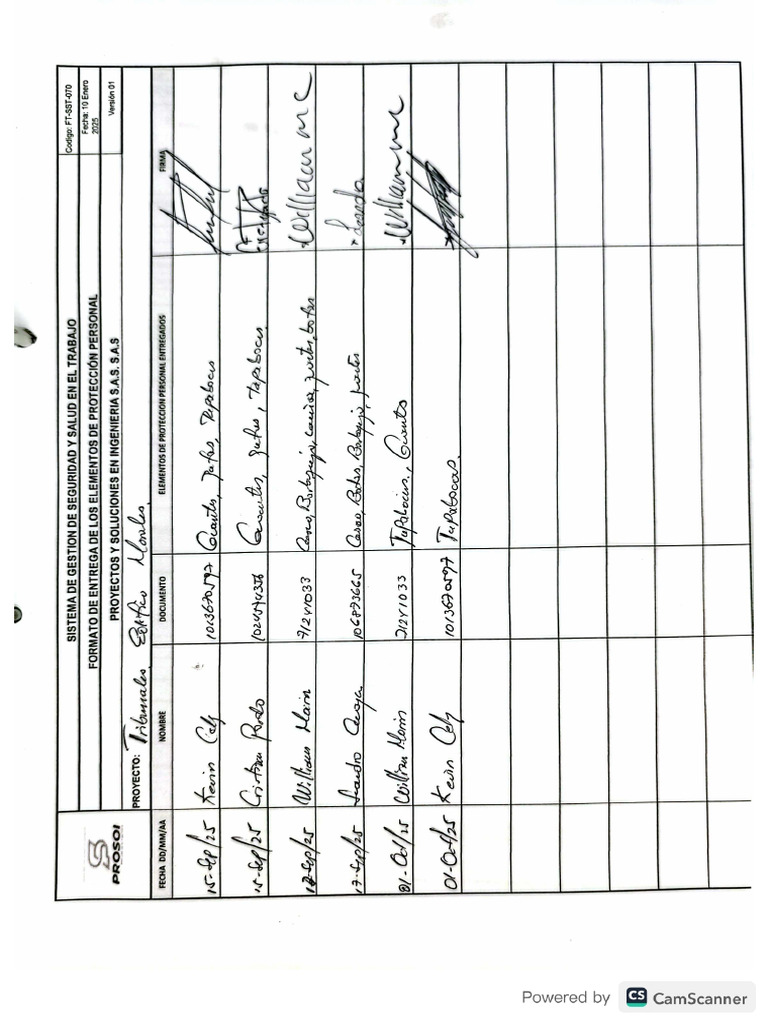 PROSOI
SISTEMA DE GESTION DE SEGURIDAD Y SALUD EN EL TRABAJO
FORMATO DE ENTREGA DE LOS ELEMENTOS DE PROTECCIÓN PERSONAL
PROYECTOS Y SOLUCIONES EN INGENIERIA S.A.S. S.A.S
Codigo: FT-SST-070
Fecha: 10 Enero
2025
Versión 01
PROYECTO: Tribunales Edifico Morales.
FECHA DD/MM/AA NOMBRE DOCUMENTO ELEMENTOS DE PROTECCION PERSONAL ENTREGADOS FIRMA
15-Sep/25 Kevin Cely 1013670597 Guantes, Gafas, Tapabocas
15-Sep/25 Cristian Pardo Guantes, Gafas, Tapabocas
17-Sep/25 William Marin 71241033 Casco, Barbuquejo, botas William mc
17-Sep/25 Leandro 106893665 Casco, Botas, Barbuquejo, guantes
01-Oct/25 William Marin 71241033 Tapabocas, Guantes William mc
01-Oct/25 Kevin Cely 1013670597 Tapabocas.
Powered by CS CamScanner